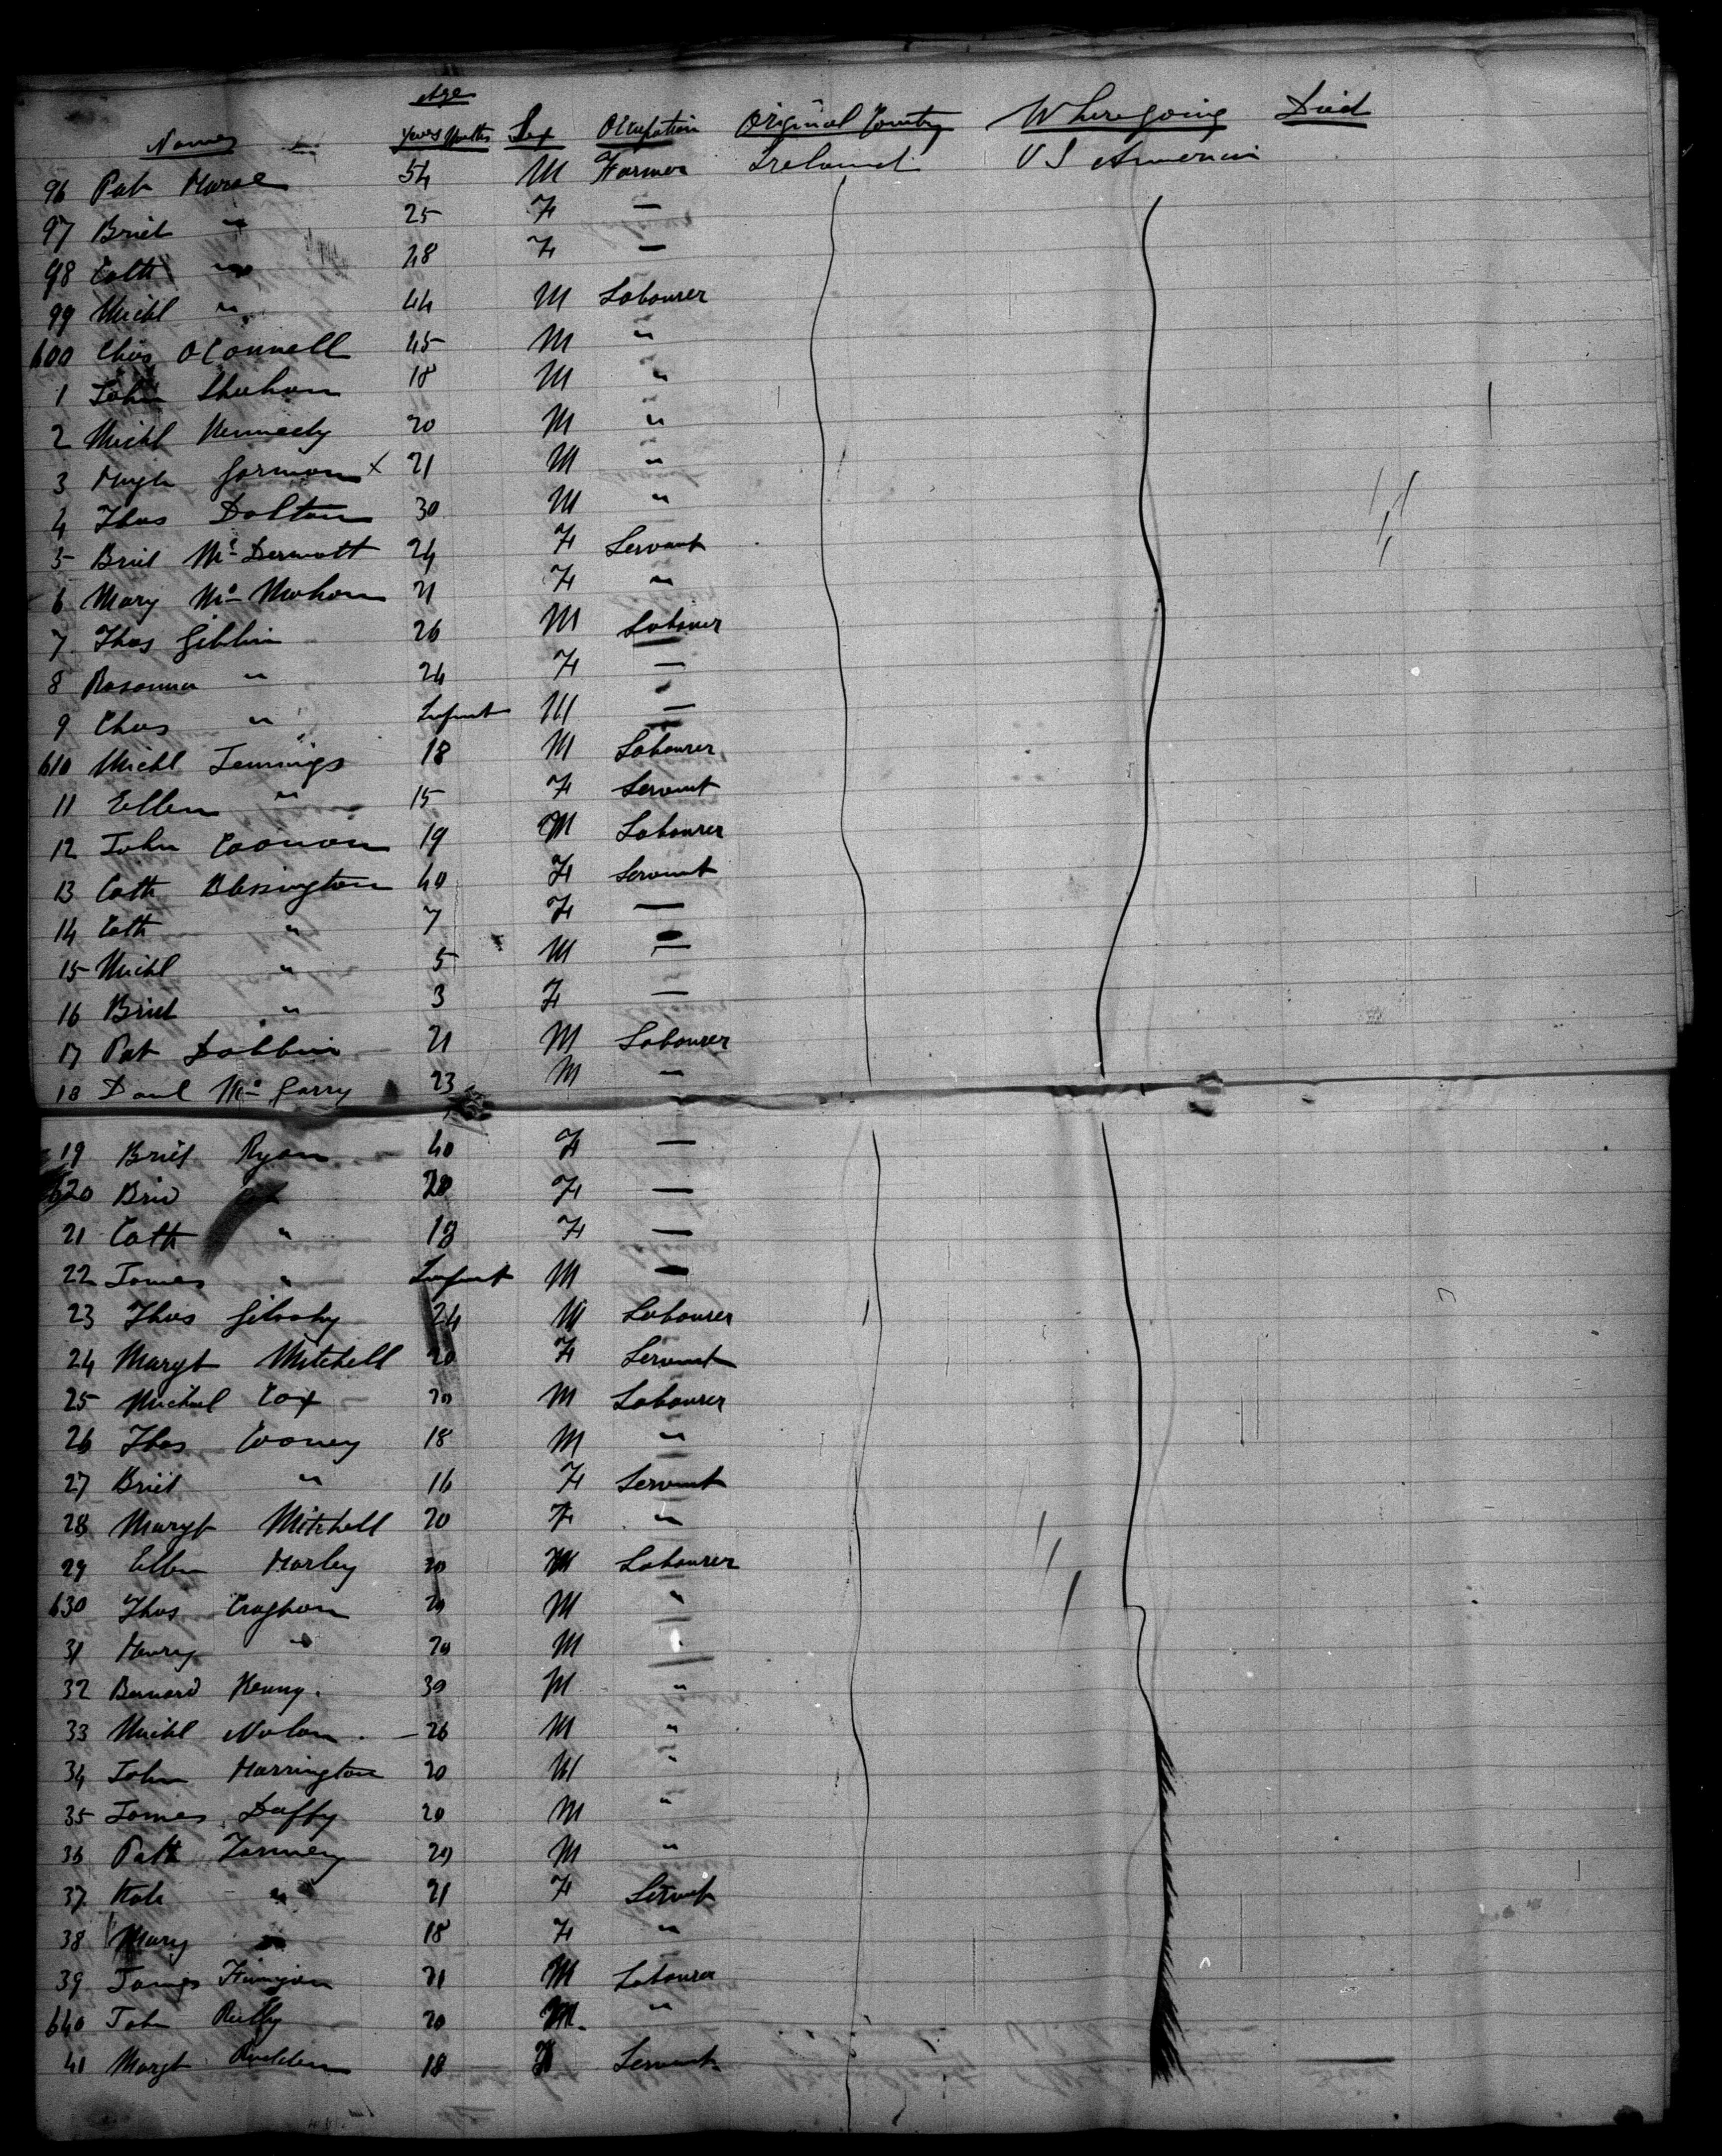 Age
Names Years Months Sex Occupation Original Country Where going Died
96 Pat 54 M Farmer Ireland U S America
97 Bridt " 25 F —
98 Cath " 28 F —
99 Michl " 44 M Labourer
600 Chas OConnell 45 M "
1 John Sheehan 18 M "
2 Michl Kennedy 20 M "
3 Hugh Gorman x 21 M "
4 Thos Dalton 30 M "
5 Bridt McDermott 24 F Servant
6 Mary McMahon 21 F "
7 Thos Giblin 26 M Labourer
8 Rosanna " 24 F —
9 Chas " Infant M —
610 Michl Jennings 18 M Labourer
11 Ellen " 15 F Servant
12 John 19 M Labourer
13 Cath Blessington 40 F Servant
14 Cath " 7 F —
15 Michl " 5 M —
16 Bridt " 3 F —
17 Pat Dobbin 21 M Labourer
18 Danl McGarry 23 M "
19 Bridt Ryan 40 F —
620 Brid 20 F —
21 Cath " 13 F —
22 James " Infant M —
23 Thos 24 M Labourer
24 Margt Mitchell 20 F Servant
25 Michael Cox 20 M Labourer
26 Thos Cooney 18 M "
27 Bridt " 16 F Servant
28 Margt Mitchell 20 F "
29 Ellen Harley 20 M Labourer
630 Thos Craghan 20 M "
31 Henry " 20 M
32 Bernard Kenny 30 M "
33 Michl Nolan 26 M "
34 John Harrington 20 M "
35 James Duffy 20 M "
36 Patt 20 M "
37 Kate " 21 F Servant
38 Mary " 18 F "
39 James 21 M Labourer
640 John Reilly 20 M "
41 Margt 18 F Servant